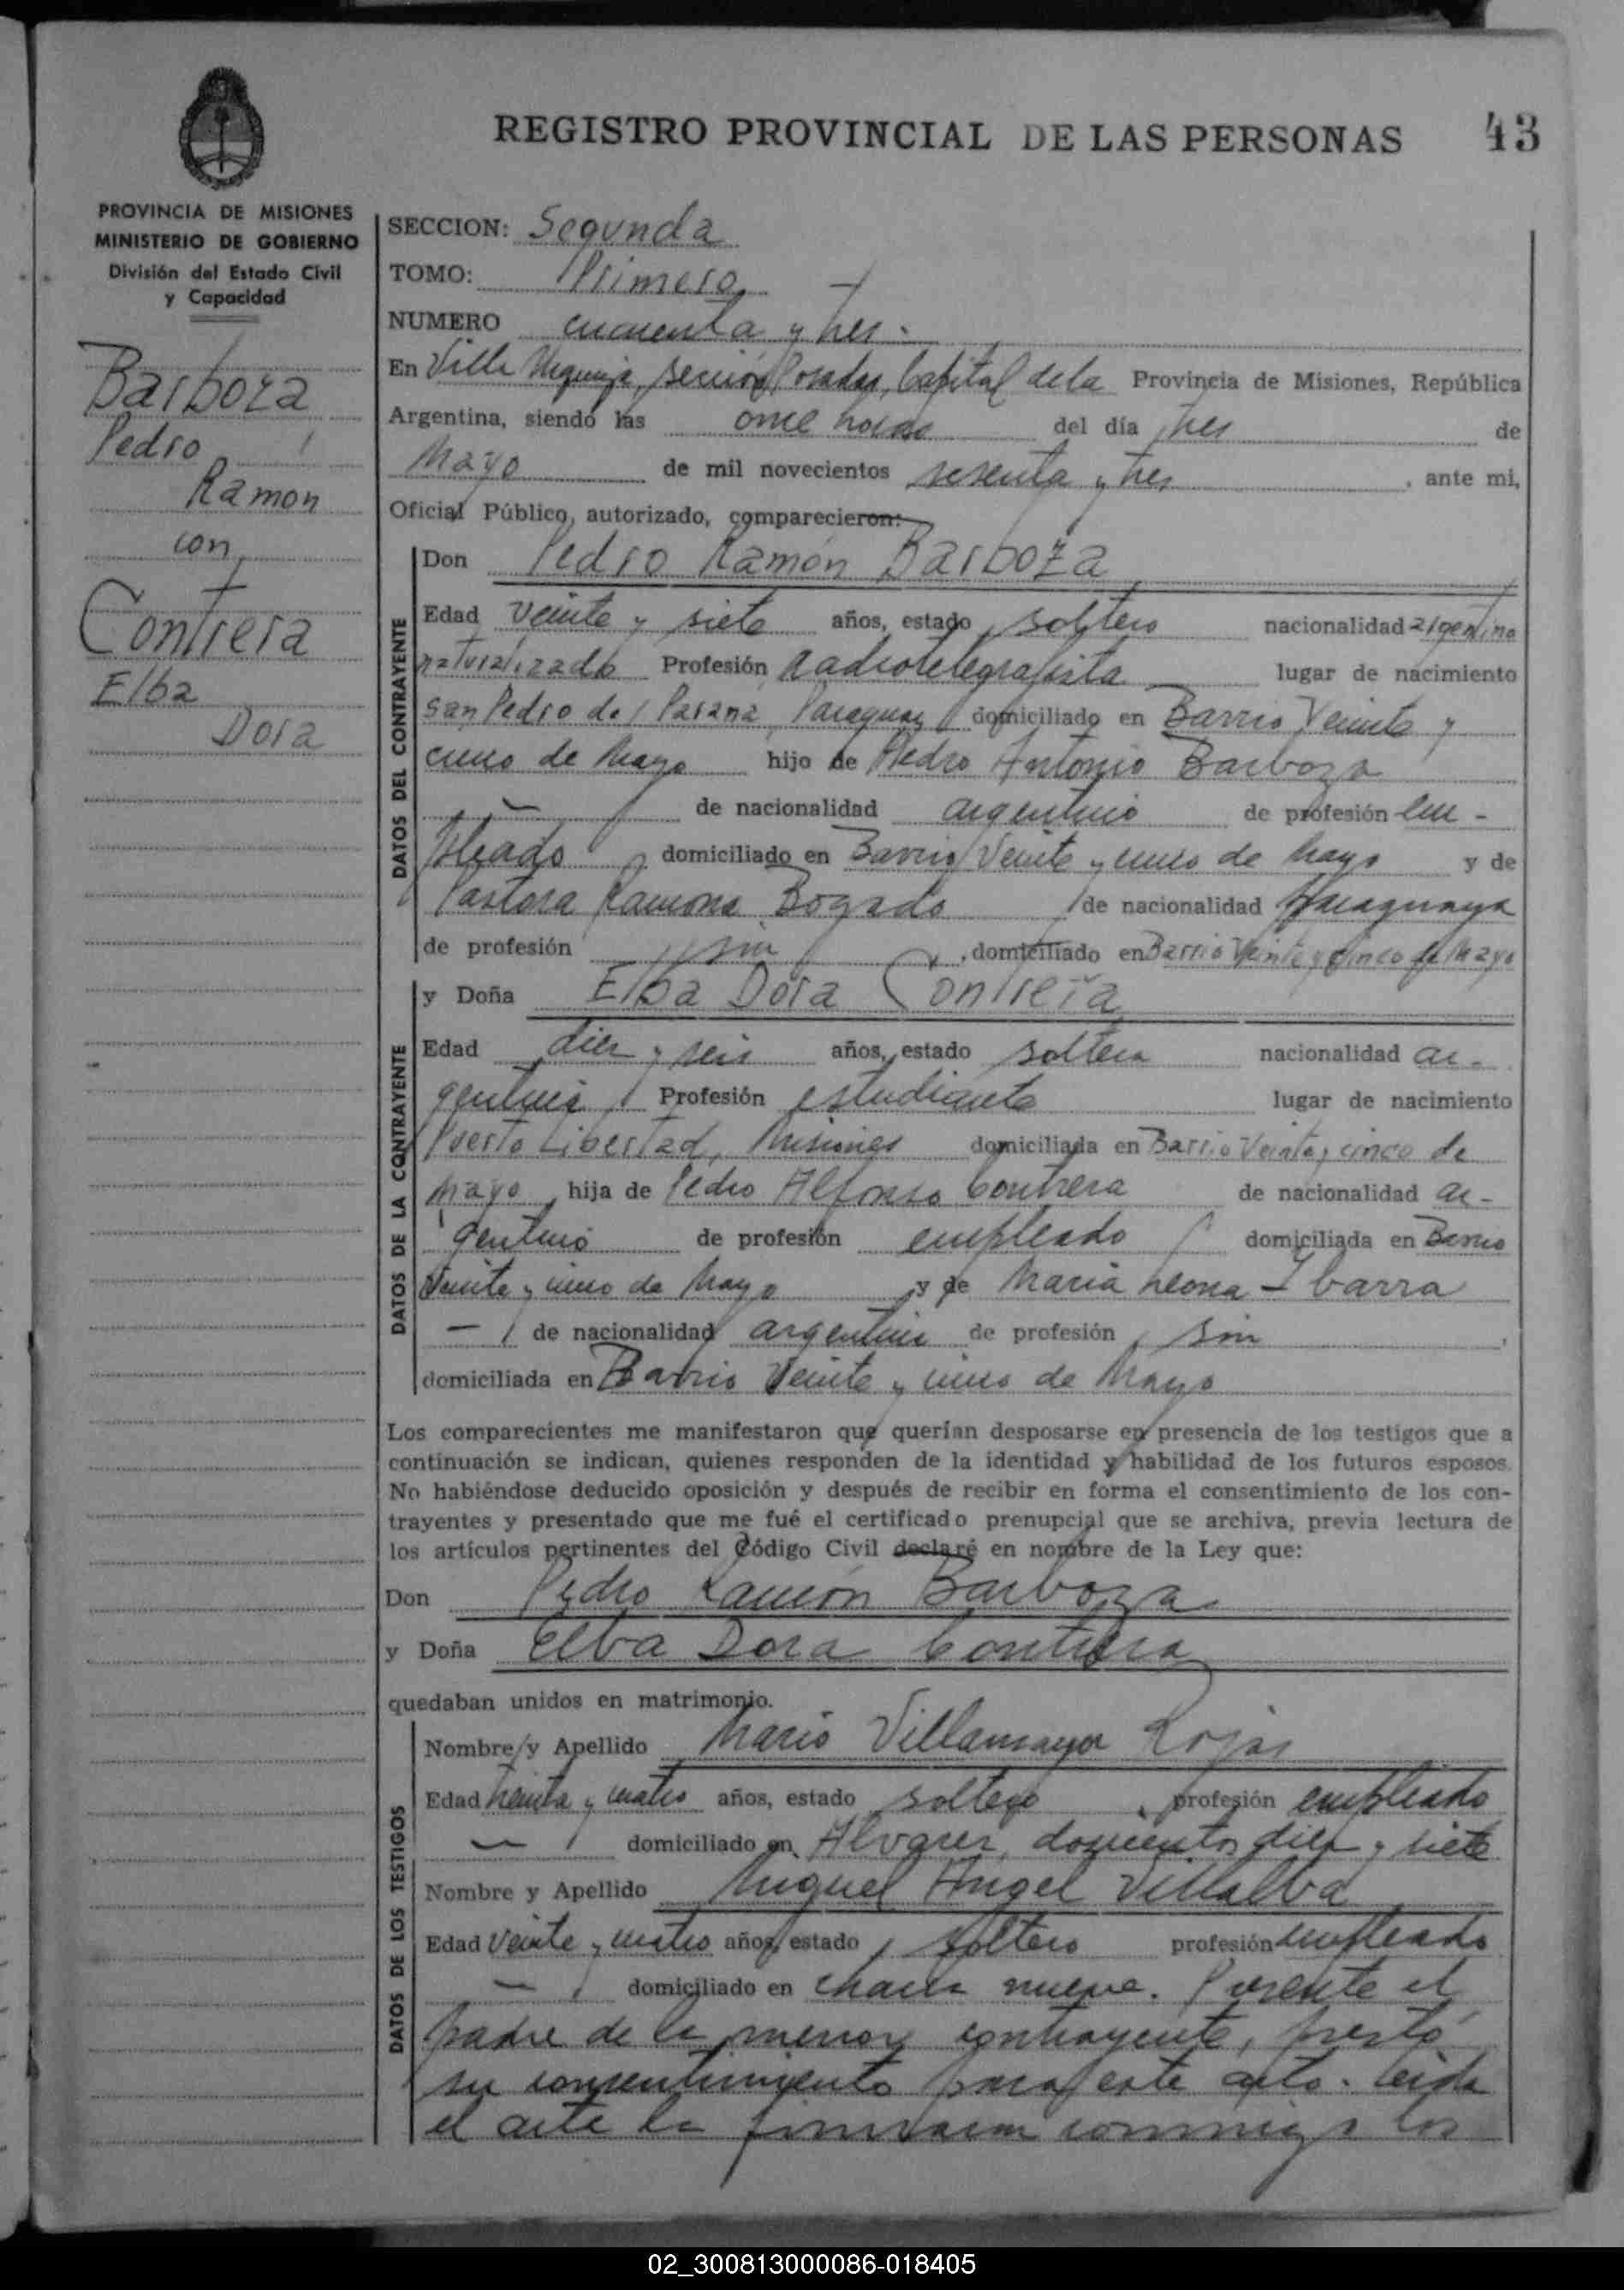 REGISTRO PROVINCIAL DE LAS PERSONAS
43
PROVINCIA DE MISIONES
MINISTERIO DE GOBIERNO
División del Estado Civil
y Capacidad
Barboza
Pedro
Ramon
con
Contrera
Elba
Dora
SECCION: Segunda
TOMO: Primero
NUMERO cincuenta y tres.
En Villa Urquiza, sección Posadas, Capital de la Provincia de Misiones, República
Argentina, siendo las once horas del día tres de
Mayo de mil novecientos sesenta y tres, ante mi,
Oficial Público, autorizado, comparecieron:
DATOS DEL CONTRAYENTE
Don Pedro Ramón Barboza
Edad veinte y siete años, estado soltero nacionalidad argentino
naturalizado Profesión radiotelegrafista lugar de nacimiento
San Pedro del Parana, Paraguay domiciliado en Barrio Veinte y
cinco de Mayo hijo de Pedro Antonio Barboza
— de nacionalidad argentino de profesión em-
pleado domiciliado en Barrio Veinte y cinco de Mayo y de
Pastora Ramona Bogado de nacionalidad paraguaya
de profesión sin, domiciliado en Barrio Veinte y cinco de Mayo
DATOS DE LA CONTRAYENTE
y Doña Elba Dora Contrera
Edad diez y seis años, estado soltera nacionalidad ar-
gentina Profesión estudiante lugar de nacimiento
Puerto Libertad, Misiones domiciliada en Barrio Veinte y cinco de
Mayo hija de Pedro Alfonso Contrera de nacionalidad ar-
gentino de profesión empleado domiciliada en Barrio
Veinte y cinco de Mayo y de Maria Leona Ibarra
— de nacionalidad argentina de profesión sin,
domiciliada en Barrio Veinte y cinco de Mayo
Los comparecientes me manifestaron que querían desposarse en presencia de los testigos que a
continuación se indican, quienes responden de la identidad y habilidad de los futuros esposos.
No habiéndose deducido oposición y después de recibir en forma el consentimiento de los con-
trayentes y presentado que me fué el certificado prenupcial que se archiva, previa lectura de
los artículos pertinentes del Código Civil declaré en nombre de la Ley que:
Don Pedro Ramón Barboza
y Doña Elba Dora Contrera
quedaban unidos en matrimonio.
DATOS DE LOS TESTIGOS
Nombre y Apellido Mario Villamayor Rojas
Edad treinta y cuatro años, estado soltero, profesión empleado
— domiciliado en Alvarez, doscientos diez y siete
Nombre y Apellido Miguel Angel Villalba
Edad veinte y cuatro años, estado soltero profesión empleado
— domiciliado en chacra nueve. Presente el
padre de la menor contrayente, prestó
su consentimiento para este acto. Leida
el acta la firmaron conmigo los
02_300813000086-018405